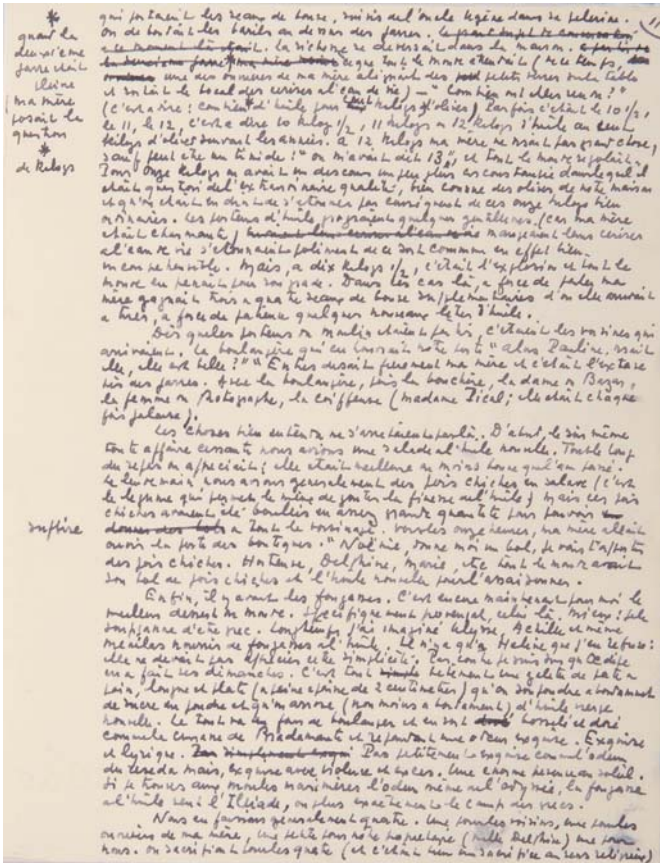 11
qui portaient les seaux de bourse, suivis de l'oncle Eugène dans sa pelerine.
on débordait les barils au dessus des jarres.
La richesse se déversait dans la maison.
* quand la deuxième jarre était pleine (ma mère posait la question *
de kilogs
ce que tout le monde attendait
une des ouvrières de ma mère alignait des petits verres sur la table
et sortait le bocal des cerises à l'eau de vie) — "Combien
(c'est à dire : combien d'huile pour cent kilogs d'olives) Parfois c'était le 10 1/2,
le 11, le 12, c'est à dire 10 kilogs 1/2, 11 kilogs ou 12 kilogs d'huile au cent
kilogs d'olives suivant les années. à 12 kilogs ma mère ne disait pas grand chose,
sauf peut être un timide : "on m'avait dit 13", et tout le monde rigolait.
Pour onze kilogs on avait un discours un peu plus circonstancié dans lequel il
était question de l'extraordinaire qualité, bien connue des olives de notre maison
et qu'on était en droit de s'étonner par conséquent de ces onze kilogs bien
ordinaires. Les porteurs d'huile, quelques gentillesses (car ma mère
était charmante) mangeaient leurs cerises
à l'eau de vie s'étonnaient poliment de ce sort commun en effet bien
incompréhensible. Mais, à dix kilogs 1/2, c'était l'explosion et tout le
monde en prenait pour son grade. Dans ces cas là, à force de parler ma
mère gagnait trois ou quatre seaux de supplémentaires d'où elle arrivait
à tirer, à force de patience quelques nouveaux litres d'huile.
Dès que les porteurs du moulin étaient partis, c'étaient les voisines qui
arrivaient. La boulangère qui en notre porte "alors Pauline, disait
elle, elle est belle ?" "Entrez disait fièrement ma mère et c'était l'extase
près des jarres. Avec la boulangère, puis la bouchère, la dame du Bazar,
la femme du Photographe, la coiffeuse (madame Pical ; elle était chaque
fois jalouse).
Les choses bien entendu ne s'arrêtaient pas là. D'abord, le soir même
toute affaire cessante nous avions une salade à l'huile nouvelle. Tout le long
du repas on appréciait ; elle était meilleure ou moins bonne que l'an passé.
Le lendemain nous avions généralement des pois chiches en salade (c'est
le légume qui permet le mieux de gouter la finesse de l'huile) Mais ces pois
chiches avaient été bouillis en assez grande quantité pour pouvoir
suffire
à tout le voisinage. Vers les onze heures, ma mère allait
ouvrir la porte des boutiques. "Noémie, donne moi un bol, je vais t'apporter
des pois chiches. Hortense, Delphine, Marie, etc tout le monde avait
son bol de pois chiches et l'huile nouvelle pour l'assaisonner.
Enfin, il y avait les fougasses. C'est encore maintenant pour moi le
meilleur dessert du monde. Spécifiquement provençal, celui là. Mieux : je le
soupçonne d'être grec. Longtemps j'ai imaginé Ulysse, Achille et même
Ménélas nourris de fougasses à l'huile. Il n'y a qu'à Hélène que j'en refuse :
elle ne devait pas apprécier cette simplicité. Par contre je suis sûr qu'Œdipe
en a fait ses dimanches. C'est tout bêtement une galette de pâte à
pain, longue et plate (à peine épaisse de 2 centimètres) qu'on saupoudre abondamment
de sucre en poudre et qu'on arrose (non moins abondamment) d'huile vierge
nouvelle. Le tout va au four du boulanger et en sort bosselé et doré
comme la cuirasse de Bradamante et répandant une odeur exquise. Exquise
et lyrique. Pas petitement exquise comme l'odeur
du réséda mais, exquise avec violence et excès. Une énorme au soleil.
Si je trouve aux moules marinières l'odeur même de l'odyssée, la fougasse
à l'huile sent l'Iliade, ou plus exactement le camp des grecs.
Nous en faisions généralement quatre. Une pour les voisins, une pour les
ouvrières de ma mère, une petite pour notre propriétaire (Melle Delphine) une pour
nous. on sacrifiait toutes quatre (et c'était bien un sacrifice au sens religieux)